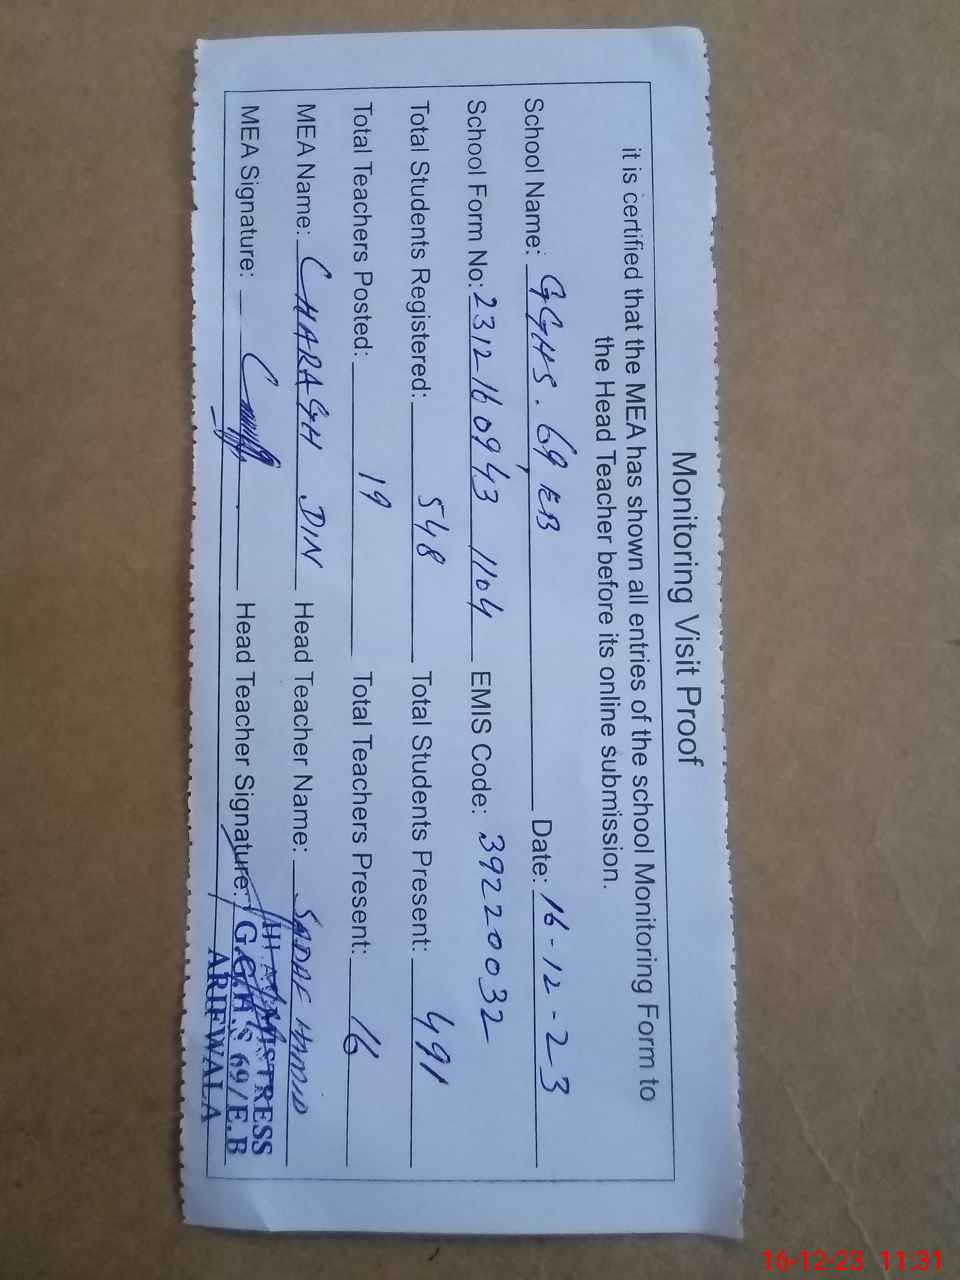 Monitoring Visit Proof
it is certified that the MEA has shown all entries of the school Monitoring Form to
the Head Teacher before its online submission.
School Name: GGHS. 69 EB Date: 16-12-23
School Form No: 231216 0943 1104 EMIS Code: 39220032
Total Students Registered: 548 Total Students Present: 491
Total Teachers Posted: 19 Total Teachers Present: 16
MEA Name: CHARAGH DIN Head Teacher Name: SADAF HAMID
MEA Signature: Head Teacher Signature:
G.G.H.S 69/E.B
ARIFWALA
16-12-23 11:31